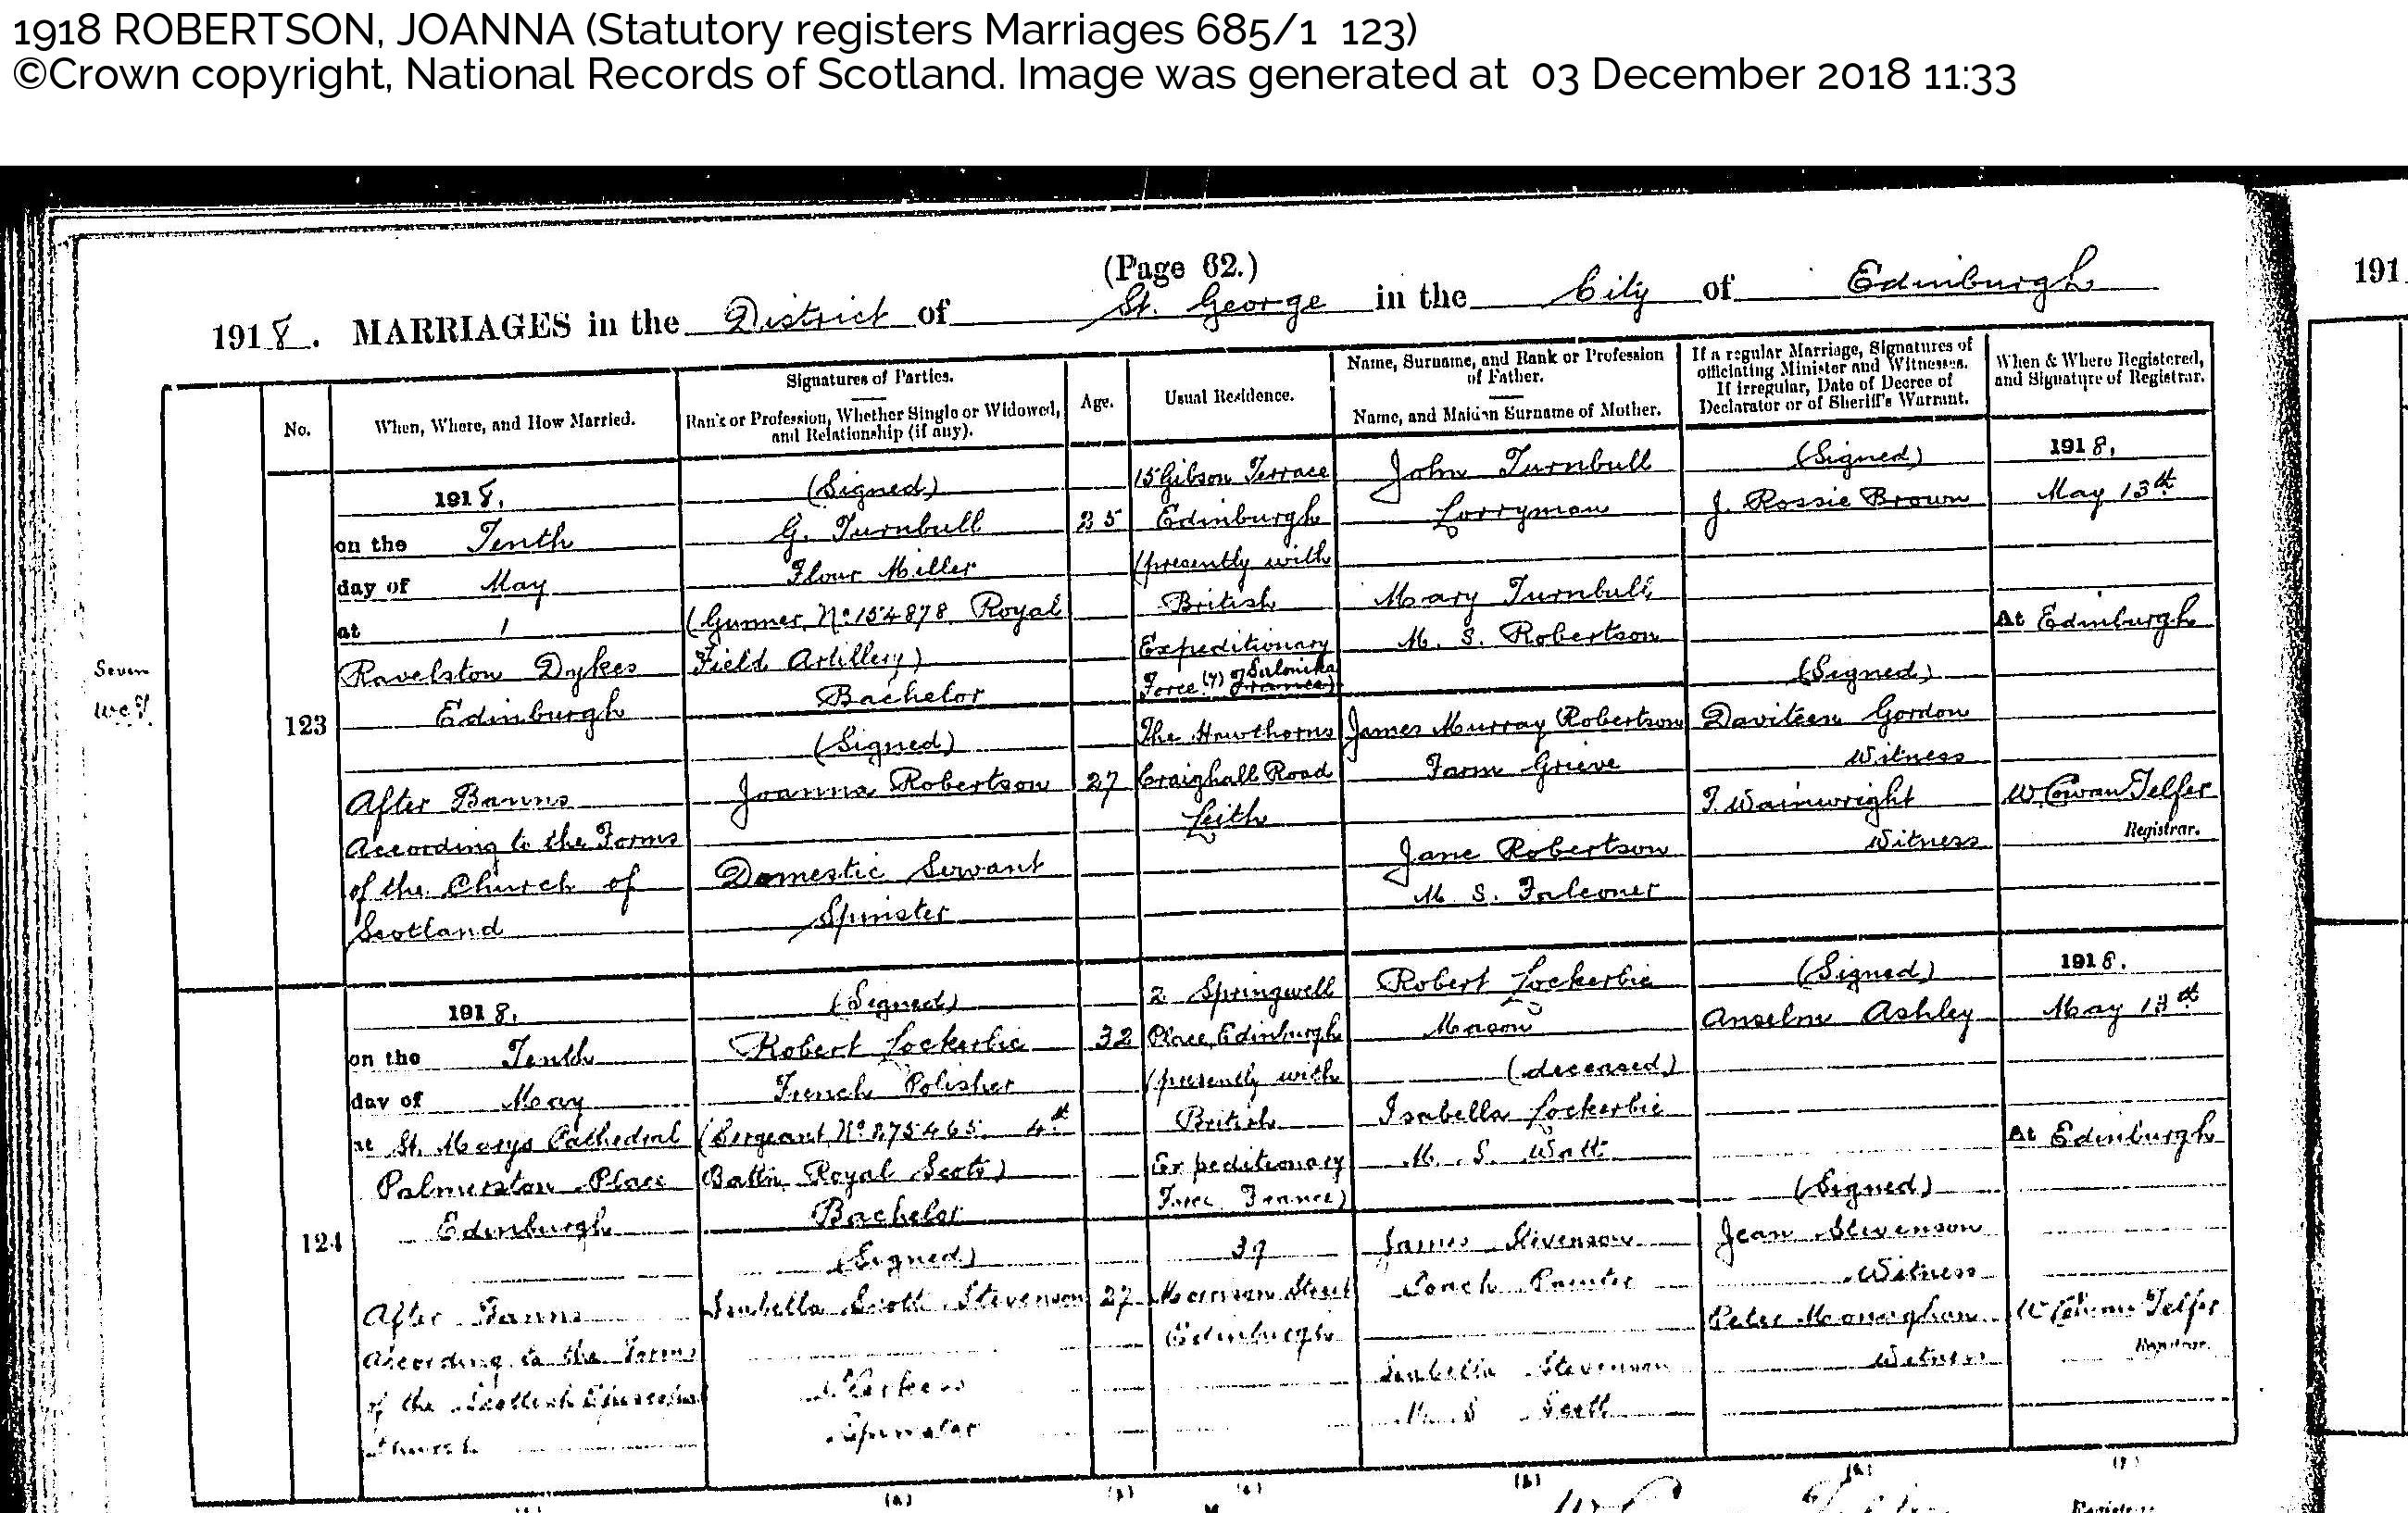 1918 ROBERTSON, JOANNA (Statutory registers Marriages 685/1 123)
©Crown copyright, National Records of Scotland. Image was generated at 03 December 2018 11:33
(Page 62.)
1918. MARRIAGES in the District of St. George in the City of Edinburgh
191
No.
When, Where, and How Married.
Signatures of Parties.
Rank or Profession, Whether Single or Widowed,
and Relationship (if any).
Age.
Usual Residence.
Name, Surname, and Rank or Profession
of Father.
Name, and Maiden Surname of Mother.
If a regular Marriage, Signatures of
officiating Minister and Witnesses.
If irregular, Date of Decree of
Declarator or of Sheriff's Warrant.
When & Where Registered,
and Signature of Registrar.
Seven
123
1918,
on the Tenth
day of May
at 1
Ravelston Dykes
Edinburgh
After Banns
According to the Forms
of the Church of
Scotland
(Signed)
G. Turnbull
Flour Miller
(Gunner, No. 154878 Royal
Field Artillery)
Bachelor
(Signed)
Joanna Robertson
Domestic Servant
Spinster
27
15 Gibson Terrace
Edinburgh
(presently with
British
Expeditionary
Salonika
Force France)
The Hawthorns
Craighall Road
Leith
John Turnbull
Lorryman
Mary Turnbull
M. S. Robertson
James Murray Robertson
Farm Grieve
Jane Robertson
M. S. Falconer
(Signed)
J. Rossie Brown
(Signed)
Gordon
Witness
T. Wainwright
Witness
1918,
May 13th
At Edinburgh
W. Cowan Telfer
Registrar.
124
1918,
on the Tenth
day of May
at St. Marys Cathedral
Palmerston Place
Edinburgh
After Banns
According to the Forms
of the Scottish Episcopal
Church
(Signed)
Robert Lockerbie
French Polisher
(Sergeant, No. 275465 4th
Battn Royal Scots)
Bachelor
(Signed)
Isabella Scott Stevenson
Spinster
32
27
2 Springwell
Place, Edinburgh
(presently with
British
Expeditionary
Force France)
37
Morrison Street
Edinburgh
Robert Lockerbie
Mason
(deceased)
Isabella Lockerbie
M. S. Watt
James Stevenson
Coach Painter
Isabella Stevenson
M. S. Scott
(Signed)
Anselm Ashley
(Signed)
Jean Stevenson
Witness
Peter Monaghan
Witness
1918.
May 13th
At Edinburgh
W. Cowan Telfer
Registrar.